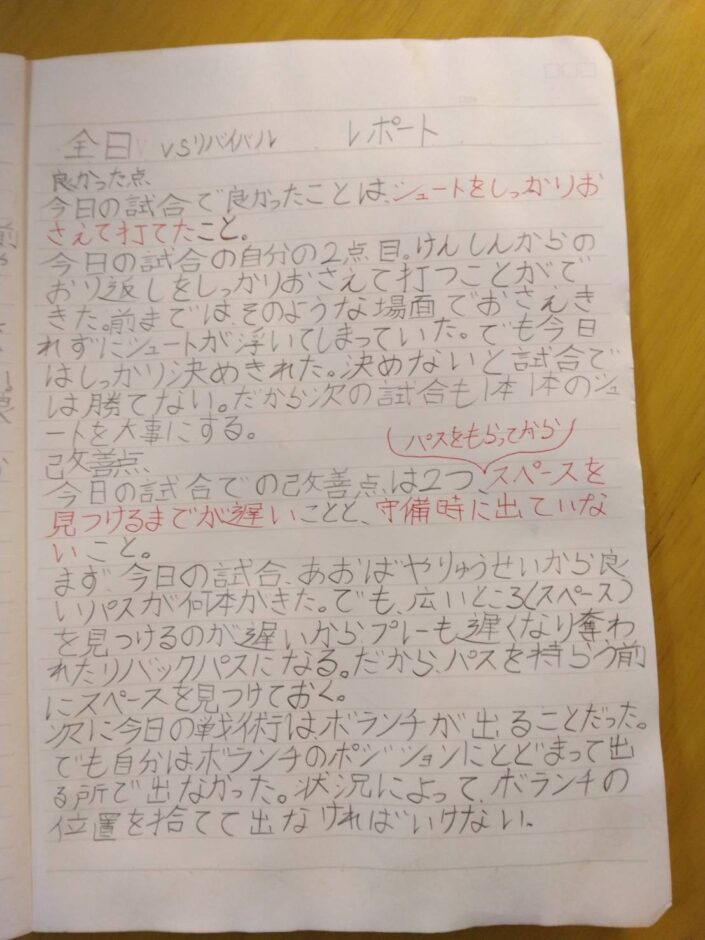 全日 VSリバイバル レポート
良かった点
今日の試合で良かったことは、シュートをしっかりお
さえて打てたこと。
今日の試合の自分の2点目。けんしんからの
おり返しをしっかりおさえて打つことがで
きた。前までは、そのような場面でおさえき
れずにシュートが浮いてしまっていた。でも今日
はしっかり決めきれた。決めないと試合で
は勝てない。だから次の試合も1本1本のシュ
ートを大事にする。
(パスをもらってから)
改善点、
今日の試合での改善点は2つ、スペースを
見つけるまでが遅いことと、守備時に出ていな
いこと。
まず、今日の試合、あおばやりゅうせいから良
いパスが何本かきた。でも、広いところ(スペース)
を見つけるのが遅いから、プレーも遅くなり奪わ
れたりバックパスになる。だから、パスを持らう前
にスペースを見つけておく。
次に今日の戦術は、ボランチが出ることだった。
でも自分はボランチのポジションにとどまって出
る所で出なかった。状況によって、ボランチの
位置を捨てて出なければいけない。